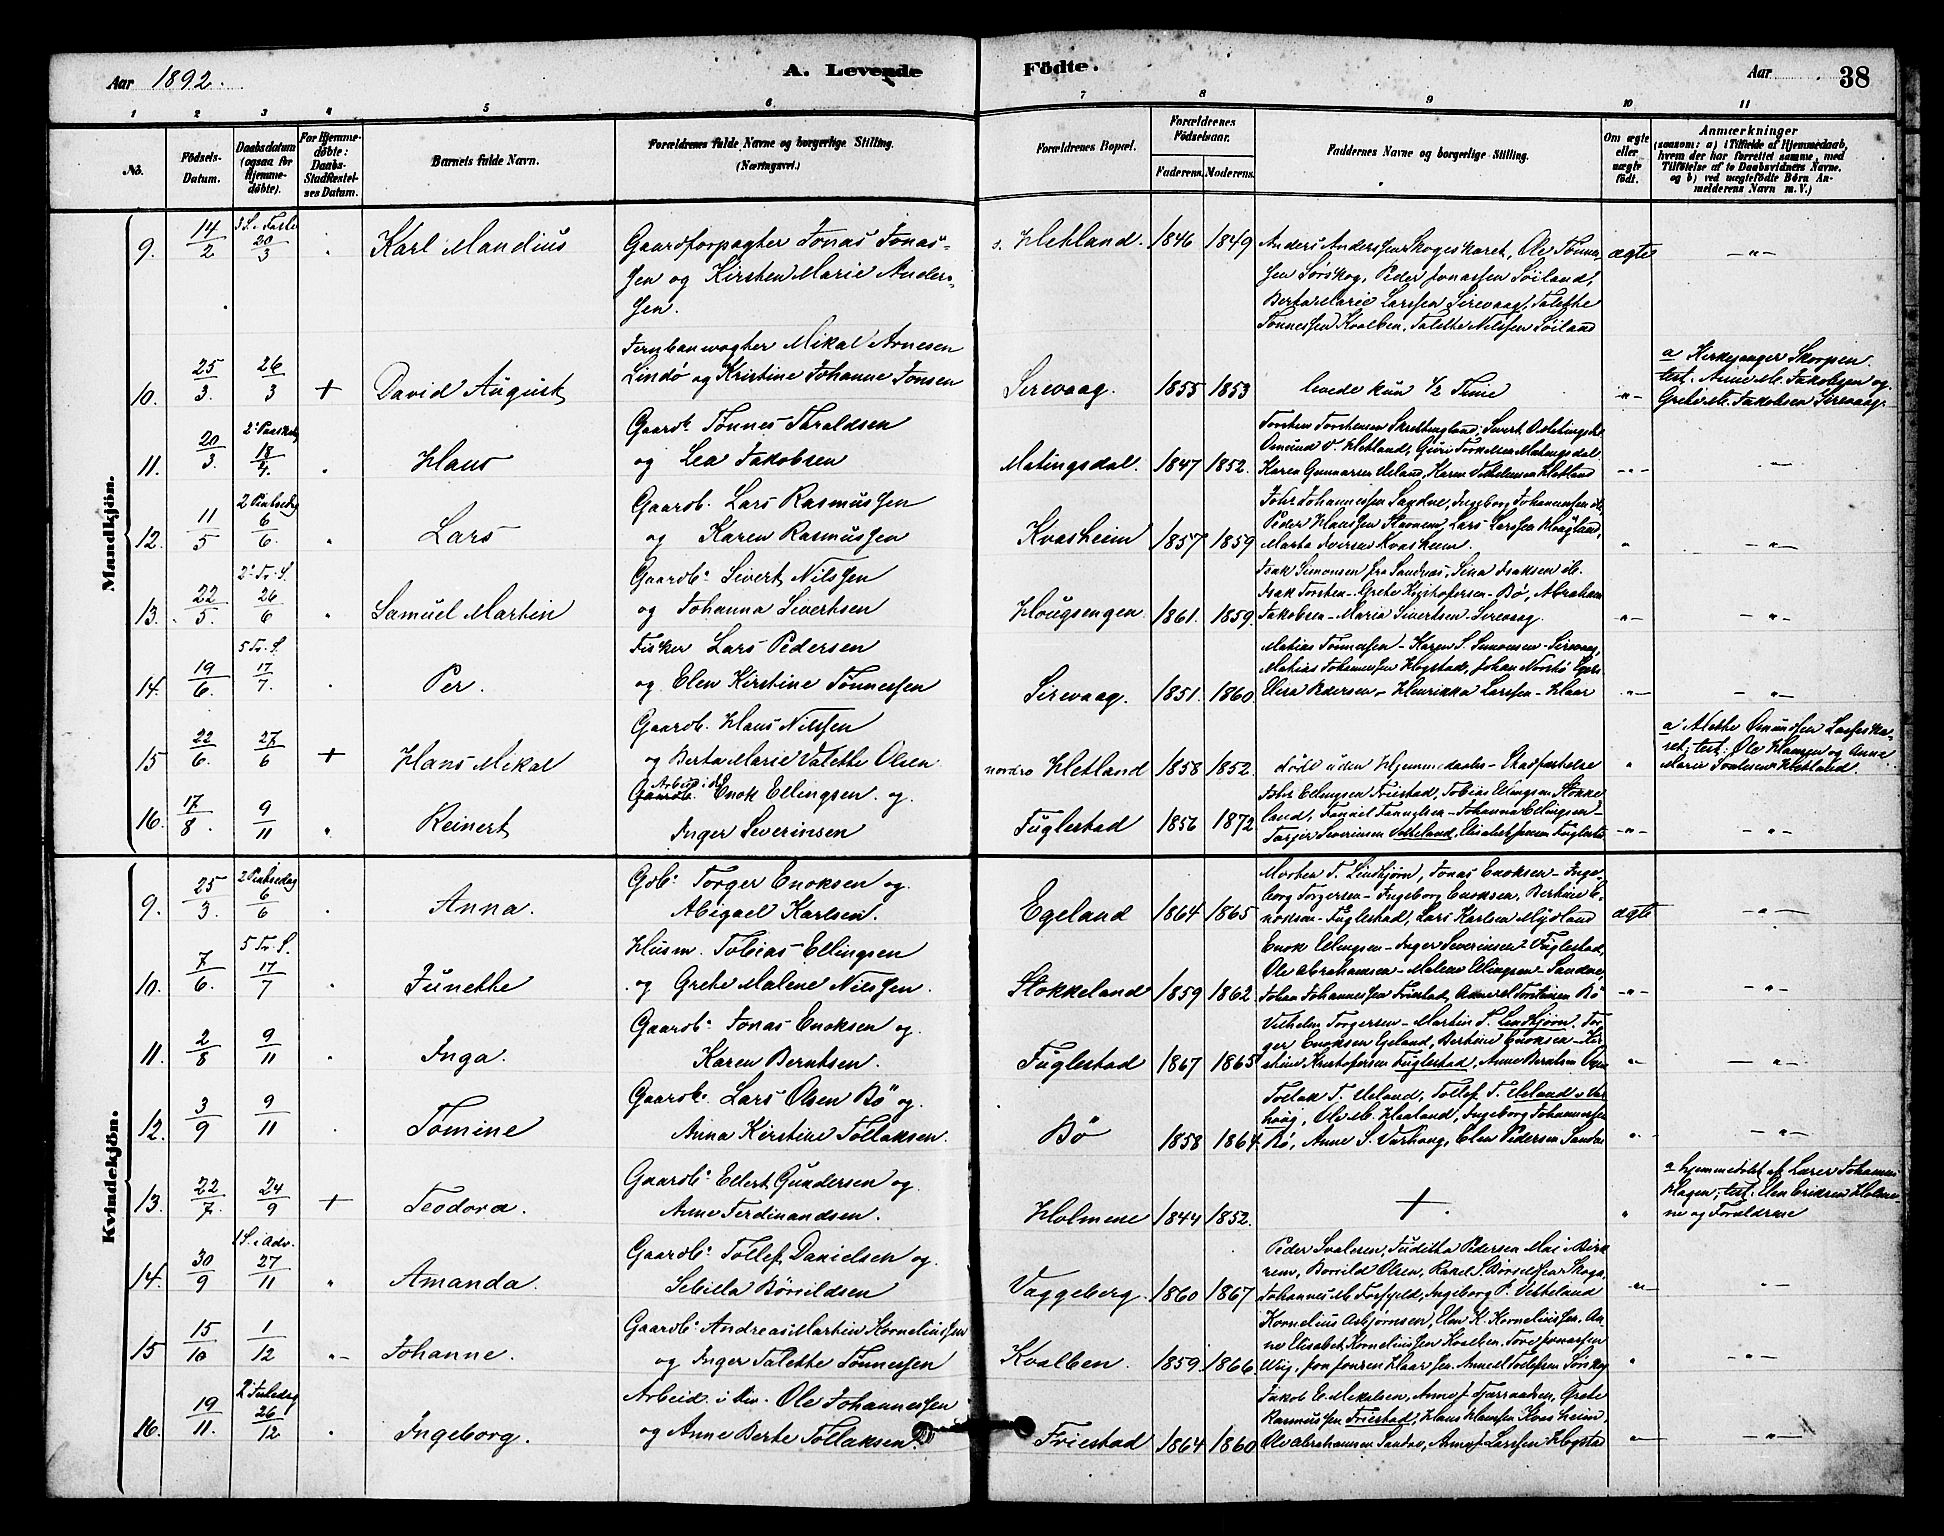 Aar 1892.
A. Levende Födte.
Aar 38
1 2 3 4 5 6 7 8 9 10 11
No.
Födsels-Datum.
Daabsdatum (ogsaa for Hjemmedöbte).
For Hjemmedöbte: Daabs-Stadfæstelses Datum.
Barnets fulde Navn.
Forældrenes fulde Navne og borgerlige Stilling.
(Næringsvei.)
Forældrenes Bopæl.
Forældrenes Födselsaar.
Faderens. Moderens.
Faddernes Navne og borgerlige Stilling.
Om ægte eller uægte födt.
Anmærkninger
(saasom: a) i Tilfælde af Hjemmedaab, hvem der har forrettet samme, med Tilföielse af to Daabsvidners Navne, og b) ved uægtefödte Börn Anmelderens Navn m. V.)
Mandkjön.
9. 14/2 3 S. i Faste 20/3 Karl Mandius
Gaardforpagter Jonas Jonas-
sen og Kirsten Marie Ander-
sen.
s. Hetland. 1846 1849
Anders Anderssen Skogeskaret, Ole Tønne-
sen Sørskog, Peder Jonassen Søiland,
Berta Marie Larssen Sirevaag, Talette
Tønnessen Kvalben, Talette Nilssen Søiland
ægte — " —
10. 25/3. 26/3 + David August
Jernbanevogter Mikal Arnesen
Lindø og Kristine Johanne Jonsen
Sirevaag. 1855 1853 levede kun 1/2 Time — " —
a Kirkesanger Skorpen
test. Anne M. Jakobsen og
Grete M. Jakobsen Sirevaag.
11. 20/3. 2' Paaskedag 18/4. Hans
Gaardb. Tønnes Taraldsen
og Lea Jakobsen
Matingsdal. 1847 1852.
Torsten Torstensen Skretlingland, Sivert O. Matingsdal
Osmund V. Hetland, Guri Torkelsen Matingsdal
Karen Gunnarsen Ueland, Karen Vilhelmsen Hetland
— " —
12. 11/5 2 Pintsedag 6/6. Lars
Gaardb. Lars Rasmussen
og Karen Rasmussen
Kvasheim 1857 1859
Johs Johannessen Sandve, Ingeborg Johannessen ib.
Peder Klaussen Stavnem, Lars Larssen Haugland,
Marta Iversen Kvasheim.
" — " —
13. 22/5. 2' Tr. S. 26/6 Samuel Martin
Gaardb: Sivert Nilssen
og Johanna Sivertsen
Hougsengen. 1861. 1859.
Isak Simonsen fra Sandnæs, Sina Isaksen ib.
Isak Torsten- Grete Kristofersen- Bø, Abraham
Jakobsen - Maria Sivertsen Sirevaag.
— " —
14. 19/6. 5 Tr. S. 17/7. Per.
Fisker Lars Pedersen
og Elen Kirstine Tønnessen
Sirevaag. 1851. 1860.
Matias Tønnessen - Karen S. Simonsen Sirevaag,
Matias Johannessen Hogstad, Johan Norstø Eger-
Elisa Pedersen - Henrikka Larssen - Haar
— " —
15 22/6. 27/6 + Hans Mikal
Gaardb. Hans Nilssen
og Berta Marie Valette Olsen
nordre Hetland 1858 1852. døde uden Hjemmedaabs- Stadfæstelse "
a: Mette Omundsen Lasseska-
ret; test: Ole Hansen og Anne
Marie Svalesen Hetland.
16. 17/8. 9/11 " Reinert
Arbeid i do
Gaardb. Enok Ellingsen og
Inger Severinsen
Fuglestad 1856 1872
Johs Ellingsen Friestad, Tobias Ellingsen Stokke
land, Tønnel Tønnelsen - Johanna Ellingsen -
Torger Severinsen Vetteland, Elisabet Jensen Fuglestad
— " —
Kvindekjön.
9. 25/3. 2 Pintsedag 6/6 Anna.
Gdb: Torger Enoksen og
Abigael Karlsen.
Egeland 1864 1865
Morten T. Lindtjørn, Jonas Enoksen - Inge-
borg Torgersen - Ingeborg Enoksen, Bertine E-
noksen - Fuglestad, Lars Karlsen Mydland
ægte — " —
10. 7/6. 5 Tr. S. 17/7 Junette
Husm. Tobias Ellingsen
og Grete Malene Nilssen.
Stokkeland 1859 1862
Enok Ellingsen - Inger Severinsen Fuglestad,
Ole Abrahamsen - Malene Ellingsen - Sandve,
Johan Johannessen Friestad, Torstensen Bø
— " —
11. 2/8 9/11 Inga.
Gaardb: Jonas Enoksen og
Karen Berntsen.
Fuglestad 1867 1865
Vilhelm Torgersen - Martin T. Lindtjørn, Tor-
ger Enoksen Egeland, Bertine Enoksen - Kir-
stine Kristofersen Fuglestad, Anne
" — " —
12. 3/9 9/11 Tomine
Gaardb. Lars Olsen Bø og
Anna Kirstine Tollaksen.
Bø 1858 1864.
Tollak T. Ueland, Tollef T. Ueland Var-
haug, Ole M. Haaland, Ingeborg Johannessen
Bø, Anne S. Varhaug, Elen Pedersen Sandve
— " —
13. 22/7. 24/9 + Teodora.
Gaardb: Eilert Gundersen og
Anne Ferdinandsen.
Holmene 1844 1852. + "
a hjemmedøbt af Lærer Johannes
Hagen; test: Elen Eriksen Holme-
ne og Forældrene
14. 30/9 1 S. i Adv. 27/11 " Amanda.
Gaardb: Tollef Danielsen og
Sibilla Børildsen
Vaggeberg. 1860 1867
Peder Svalesen, Juditha Pedersen Mai i Birk-
rem, Borrild Olsen, Rakel S. Børildsen Skoge,
Johannes M. Fossfjeld, Ingeborg P. Vetteland
— " —
15 15/10 1/12 Johanne.
Gaardb: Andreas Martin Korneliussen
og Inger Talette Tønnessen
Kvalben. 1859. 1866.
Kornelius Asbjørnsen, Elen K. Korneliussen, An-
ne Elisabet Korneliussen Kvalben, Tore Jonassen
Wiig, Jon Jonsen Haar, Anne M. Tollefsen Sørskog
" — " —
16. 19/11. 2' Juledag 26/12 Ingeborg.
Arbeid. i Ste. Ole Johannessen
og Anne Berte Tollaksen.
Friestad 1864 1860
Jakob E. Mikalsen, Anne J. Tjørraasen, Grete
Rasmussen Friestad, Hans Hansen Kvasheim,
Ole Abrahamsen Sandve, Anne J. Larssen Hogstad
— " —